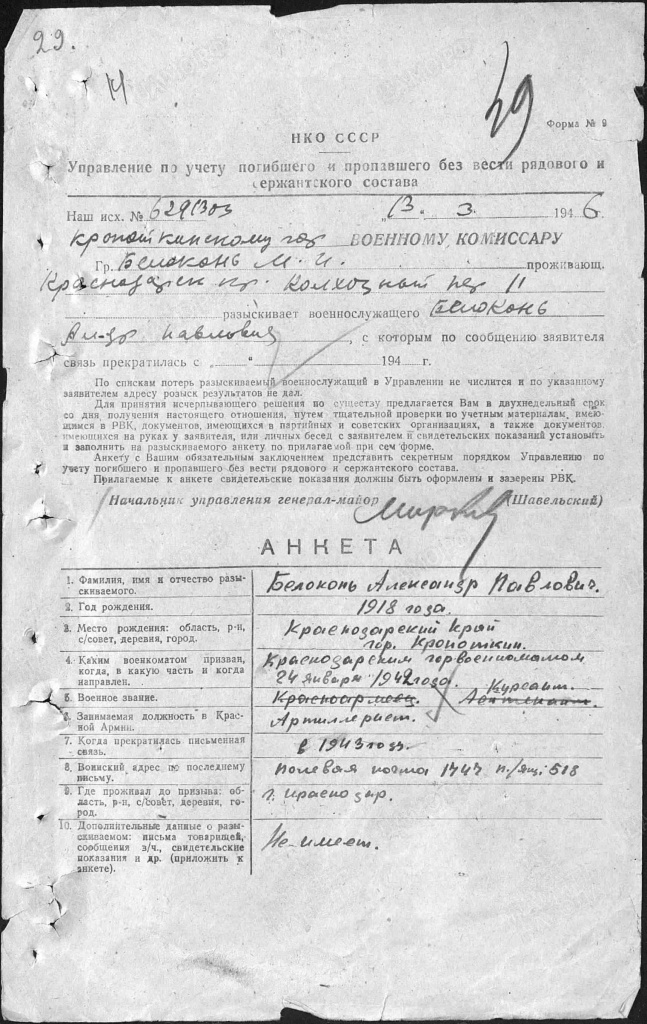 29.
49
Форма № 9
НКО СССР
Управление по учету погибшего и пропавшего без вести рядового и
сержантского состава
Наш исх. № 6291303 13. 3. 1946 г.
Кропоткинскому гор ВОЕННОМУ КОМИССАРУ
Гр. Белоконь М. И. проживающ.
Краснодарск кр. Колхозный пер 11
разыскивает военнослужащего Белоконь
Ал-др Павлович, с которым по сообщению заявителя
связь прекратилась с „ “ 194 г.
По спискам потерь разыскиваемый военнослужащий в Управлении не числится и по указанному
заявителем адресу розыск результатов не дал.
Для принятия исчерпывающего решения по существу предлагается Вам в двухнедельный срок
со дня получения настоящего отношения, путем тщательной проверки по учетным материалам, имею-
щимся в РВК, документов, имеющихся в партийных и советских организациях, а также документов,
имеющихся на руках у заявителя, или личных бесед с заявителем и свидетельских показаний установить
и заполнить на разыскиваемого анкету по прилагаемой при сем форме.
Анкету с Вашим обязательным заключением представить секретным порядком Управлению по
учету погибшего и пропавшего без вести рядового и сержантского состава.
Прилагаемые к анкете свидетельские показания должны быть оформлены и заверены РВК.
Начальник управления генерал-майор (Шавельский)
АНКЕТА
1. Фамилия, имя и отчество разы-
скиваемого.
Белоконь Александр Павлович.
2. Год рождения.
1918 года.
3. Место рождения: область, р-н,
с/совет, деревня, город.
Краснодарский Край
гор. Кропоткин.
4. Каким военкоматом призван,
когда, в какую часть и когда
направлен.
Краснодарским горвоенкоматом
24 января 1942 года.
5. Военное звание.
Красноармеец. Лейтенант. Курсант.
6. Занимаемая должность в Крас-
ной Армии.
Артиллерист.
7. Когда прекратилась письменная
связь.
в 1943 году.
8. Воинский адрес по последнему
письму.
Полевая почта 1747 п/ящ 518
9. Где проживал до призыва: об-
ласть, р-н, с/совет, деревня, го-
род.
г. Краснодар.
10. Дополнительные данные о разы-
скиваемом: письма товарищей,
сообщения з/ч., свидетельские
показания и др. (приложить к
анкете).
Не-имеет.